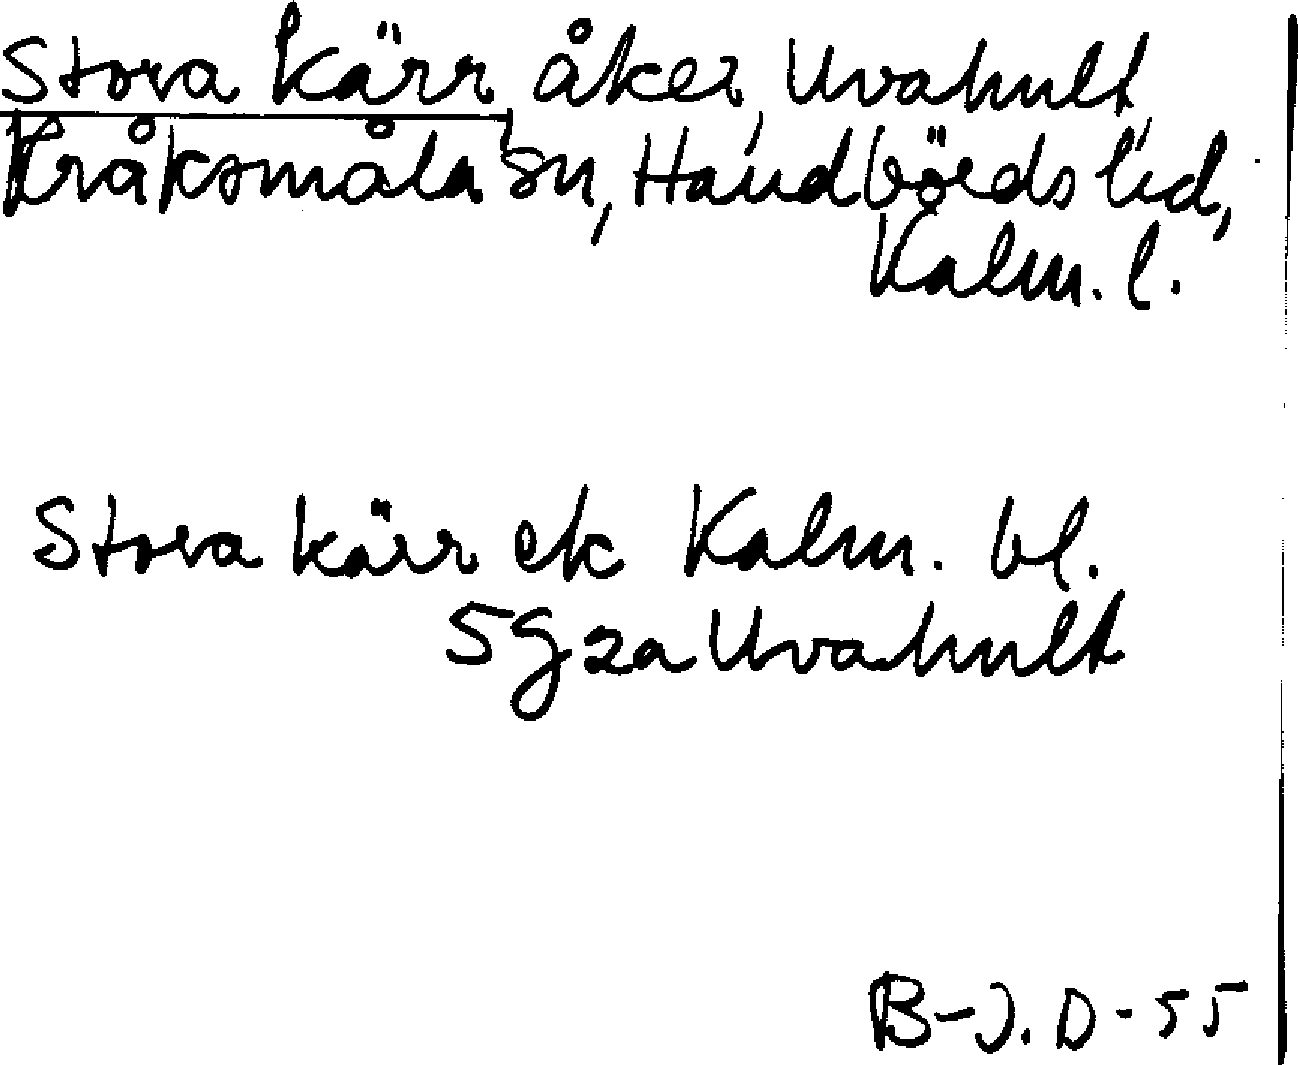 Stora kärr, åker, Uvahult,
Kråksmåla sn, Handbörds hd,
Kalm. l.
Stora kärr ek Kalm. bl.
5g2a Uvahult
B-J. D-55